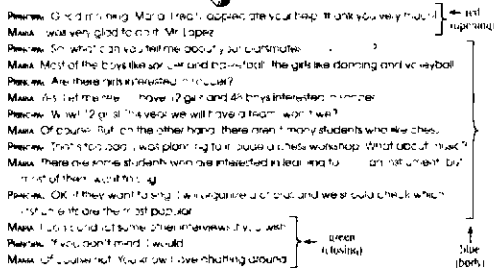 PRINCIPAL: Good morning, Maria. I really appreciate your help. Thank you very much!
MARIA: I was very glad to do it, Mr. Lopez.
PRINCIPAL: So, what can you tell me about your classmates
MARIA: Most of the boys like soccer and basketball; the girls like dancing and volleyball.
PRINCIPAL: Are there girls interested in soccer?
MARIA: Yes. Let me see I have 12 girls and 43 boys interested in soccer.
PRINCIPAL: Wow! 12 girls! This year we will have a team, won't we?
MARIA: Of course. But, on the other hand, there aren't many students who like chess.
PRINCIPAL: That's too bad. I was planning to include a chess workshop. What about music?
MARIA: There are some students who are interested in learning to an instrument, but
most of them want to sing.
PRINCIPAL: OK. If they want to sing, I will organize a chorus and we should check which
instruments are the most popular.
MARIA: I can conduct some other interviews if you wish.
PRINCIPAL: If you don't mind, I would
MARIA: Of course not. You know I love chatting around.
red
(opening)
green
(closing)
blue
(body)